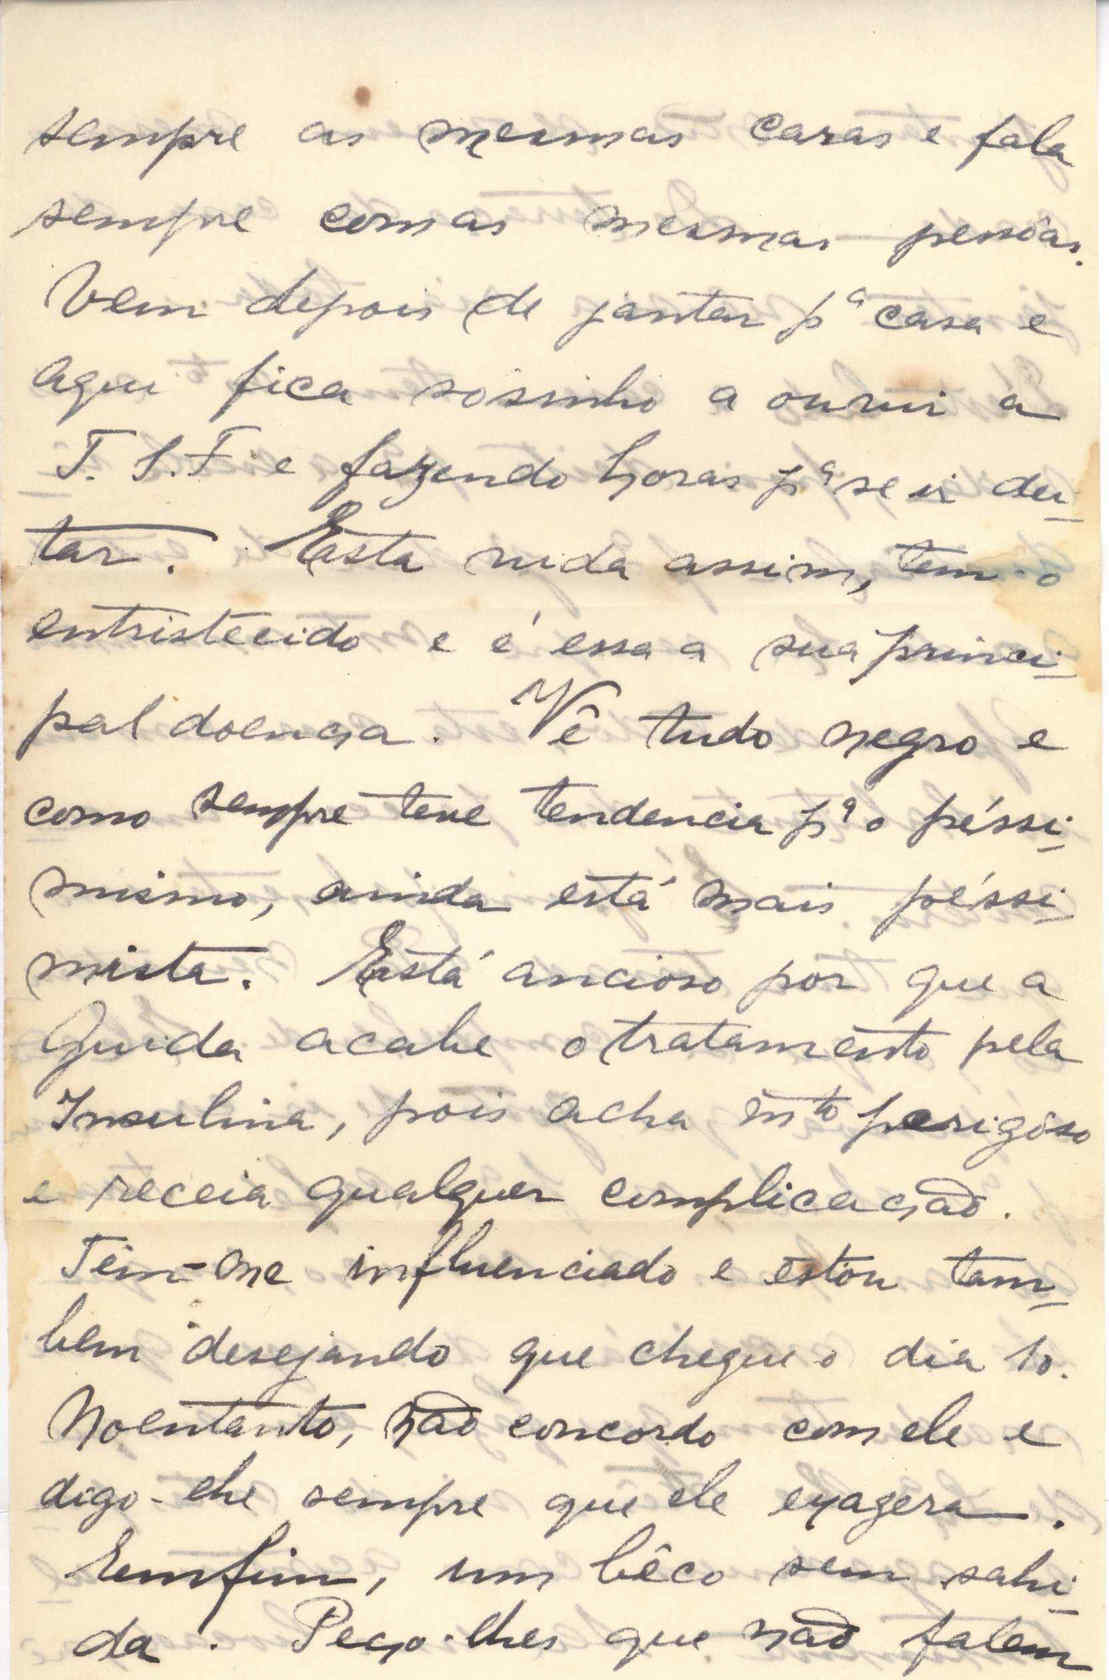 sempre as mesmas caras e fala
sempre com as mesmas pessôas.
Vem depois de jantar pª casa e
aqui fica sósinho a ouvir a
T. S. F. e fazendo horas pª se ir dei-
tar. Esta vida assim, tem-o
entristecido e é essa a sua princi-
pal doença. Vê tudo negro e
como sempre teve tendencia pª o péssi-
mismo, ainda está mais péssi-
mista. Está ancioso por que a
Guida acabe o tratamento pela
Insulina, pois acha mto perigôso
e receia qualquer complicação.
Tem-me influenciado e estou tam-
bem desejando que chegue o dia 10.
No entanto, não concordo com ele e
digo-lhe sempre que ele exagera.
Emfim, um bêco sem sahi-
da. Peço-lhes que não falem